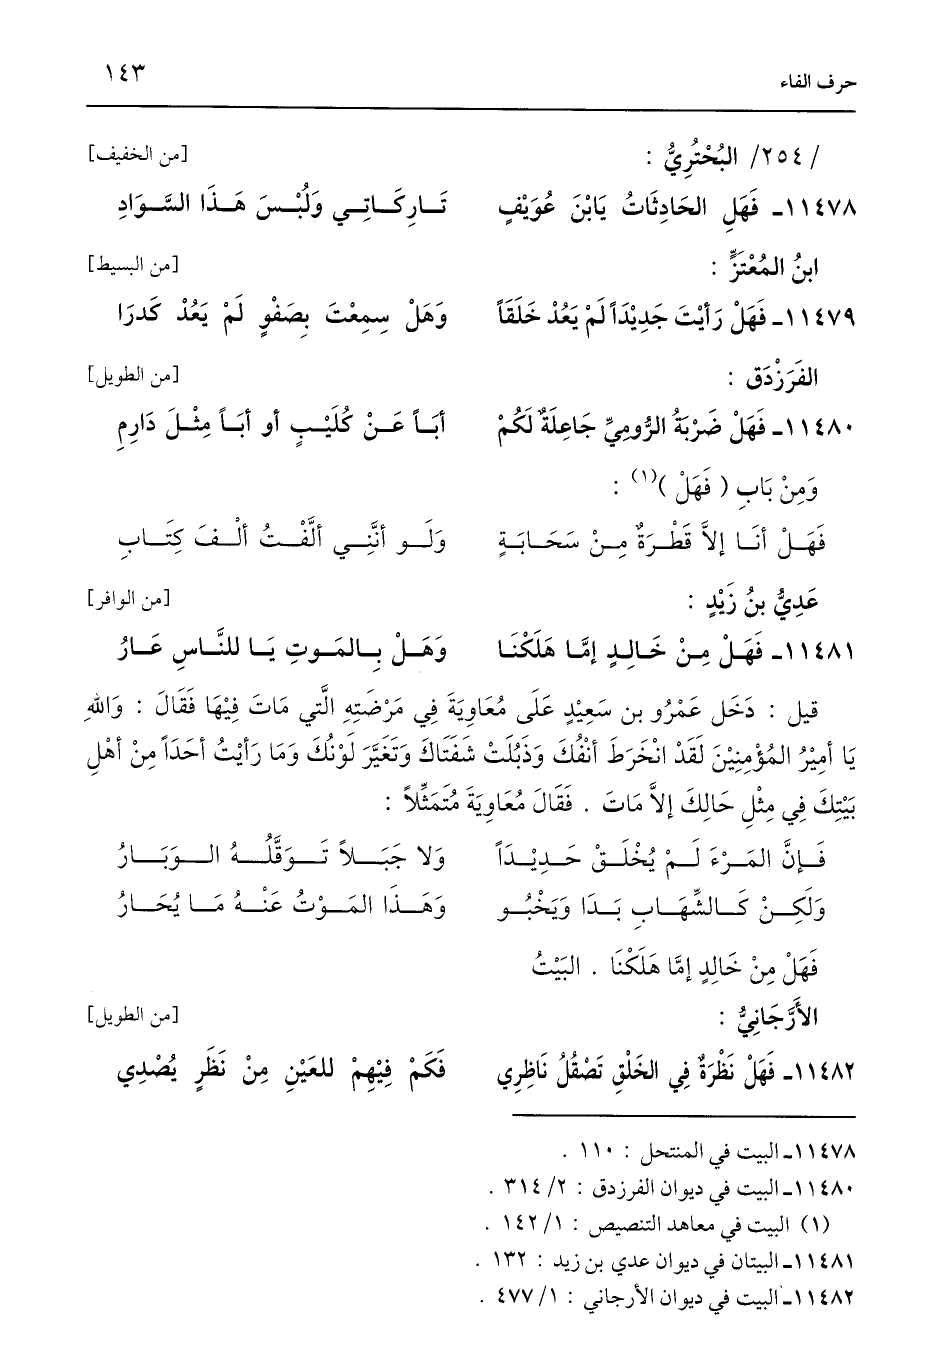 حرف الفاء ١٤٣
/٢٥٤/ البُحْتُرِيُّ : [من الخفيف]
١١٤٧٨ـ فَهَلِ الحَادِثَاتُ يَابْنَ عُوَيْفٍ تَارِكَاتِي وَلُبْسَ هَذَا السَّوَادِ
ابنُ المُعْتَزِّ : [من البسيط]
١١٤٧٩ـ فَهَلْ رَأَيْتَ جَدِيْدَاً لَمْ يَعُدْ خَلَقَاً وَهَلْ سِمِعْتَ بِصَفْوٍ لَمْ يَعُدْ كَدرَا
الفَرَزْدَق : [من الطويل]
١١٤٨٠ـ فَهَلْ ضَرْبَةُ الرُّومِيِّ جَاعِلَةٌ لَكُمْ أَبَاً عَنْ كُلَيْبٍ أو أبَاً مِثْلَ دَارِمِ
وَمِنْ بَابِ ( فَهَلْ )(١) :
فَهَلْ أنَا إلاَّ قَطْرَةٌ مِنْ سَحَابَةٍ وَلَو أنَّنِي ألَّفْتُ ألْفَ كِتَابِ
عَدِيُّ بنُ زَيْدٍ : [من الوافر]
١١٤٨١ـ فَهَلْ مِنْ خَالِدٍ إمَّا هَلَكْنَا وَهَلْ بِالمَوتِ يَا للنَّاسِ عَارُ
قيل : دَخَل عَمْرُو بن سَعِيْدٍ عَلَى مُعَاوِيَةَ فِي مَرْضَتِهِ الَّتِي مَاتَ فِيْهَا فَقَالَ : وَاللهِ
يَا أمِيْرُ المُؤْمِنِيْنَ لَقَدْ انْخَرَطَ أنْفُكَ وَذَبُلَتْ شَفَتَاكَ وَتَغَيَّرَ لَوْنُكَ وَمَا رَأيْتُ أحَدَاً مِنْ أهْلِ
بَيْتِكَ فِي مِثْلِ حَالِكَ إلاَّ مَاتَ . فَقَالَ مُعَاوِيَةَ مُتَمَثِّلاً :
فَإنَّ المَرْءَ لَمْ يُخْلَقْ حَدِيْدَاً وَلا جَبَلاً تَوَقَّلُهُ الوَبَارُ
وَلَكِنْ كَالشِّهَابِ بَدَا وَيَخْبُو وَهَذَا المَوْتُ عَنْهُ مَا يُحَارُ
فَهَلْ مِنْ خَالِدٍ إمَّا هَلَكْنَا . البَيْتُ
الأَرَّجَانِيُّ : [من الطويل]
١١٤٨٢ـ فَهَلْ نَظْرَةٌ فِي الخَلْقِ تَصْقُلُ نَاظِرِي فَكَمْ فِيْهِمْ للعَيْنِ مِنْ نَظَرٍ يُصْدِي
١١٤٧٨ـ البيت في المنتحل : ١١٠ .
١١٤٨٠ـ البيت في ديوان الفرزدق : ٢/ ٣١٤ .
(١) البيت في معاهد التنصيص : ١/ ١٤٢ .
١١٤٨١ـ البيتان في ديوان عدي بن زيد : ١٣٢ .
١١٤٨٢ـ البيت في ديوان الأرجاني : ١/ ٤٧٧ .